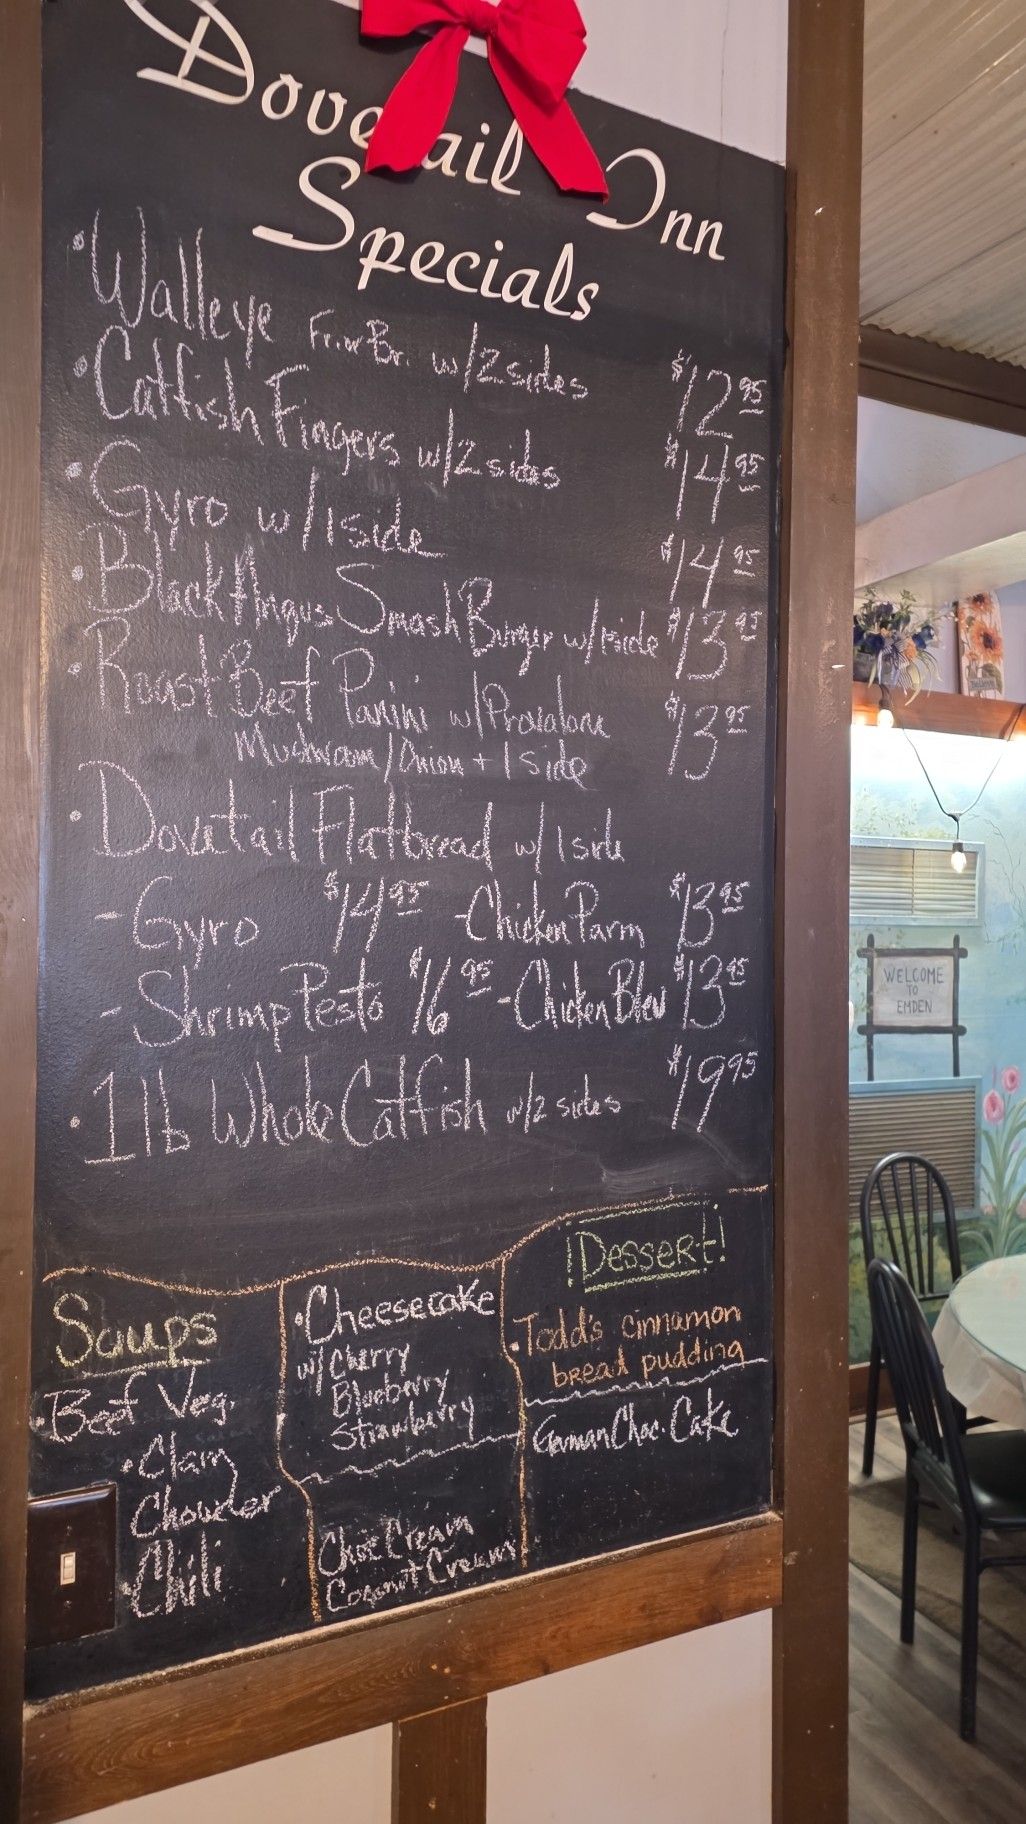 Dovetail Inn
Specials
• Walleye Fr. or Br. w/2 sides $12.95
• Catfish Fingers w/2 sides $14.95
• Gyro w/1 side $14.95
• Black Angus Smash Burger w/1 side $13.95
• Roast Beef Panini w/Provalone $13.95
Mushroom/Onion + 1 side
• Dovetail Flatbread w/1 side
- Gyro $14.95 - Chicken Parm $13.95
- Shrimp Pesto $16.95 - Chicken Bleu $13.95
• 1 lb Whole Catfish w/2 sides $19.95
Soups
• Beef Veg.
• Clam
Chowder
• Chili
• Cheesecake
w/ Cherry
Blueberry
Strawberry
Choc Cream
Coconut Cream
¡Dessert!
• Todd's cinnamon
bread pudding
German Choc. Cake
WELCOME
TO
EMDEN